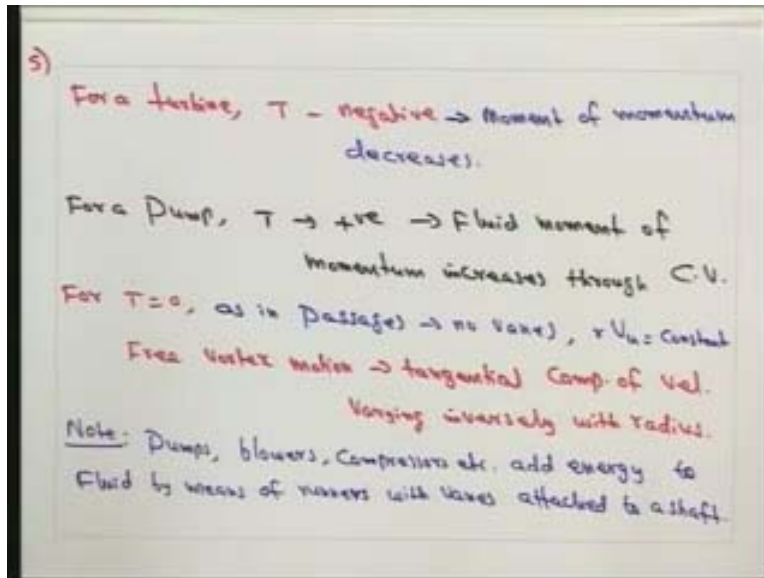 5)
For a turbine, T - negative → Moment of momentum
decreases.
For a Pump, T → +ve → Fluid moment of
momentum increases through C.V.
For T=0, as in passages → no vanes, r Vu = Constant
Free vortex motion → tangential Comp. of vel.
Varying inversely with radius.
Note: Pumps, blowers, Compressors etc. add energy to
Fluid by means of runners with vanes attached to a shaft.